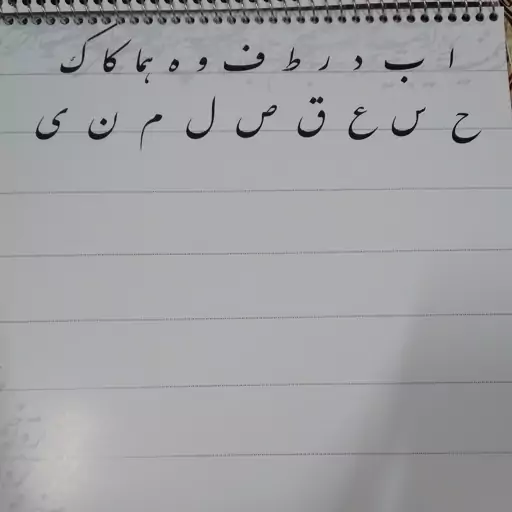 ا ب د ر ط ف و ه هما کا ک
ح س ع ق ص ل م ن ی